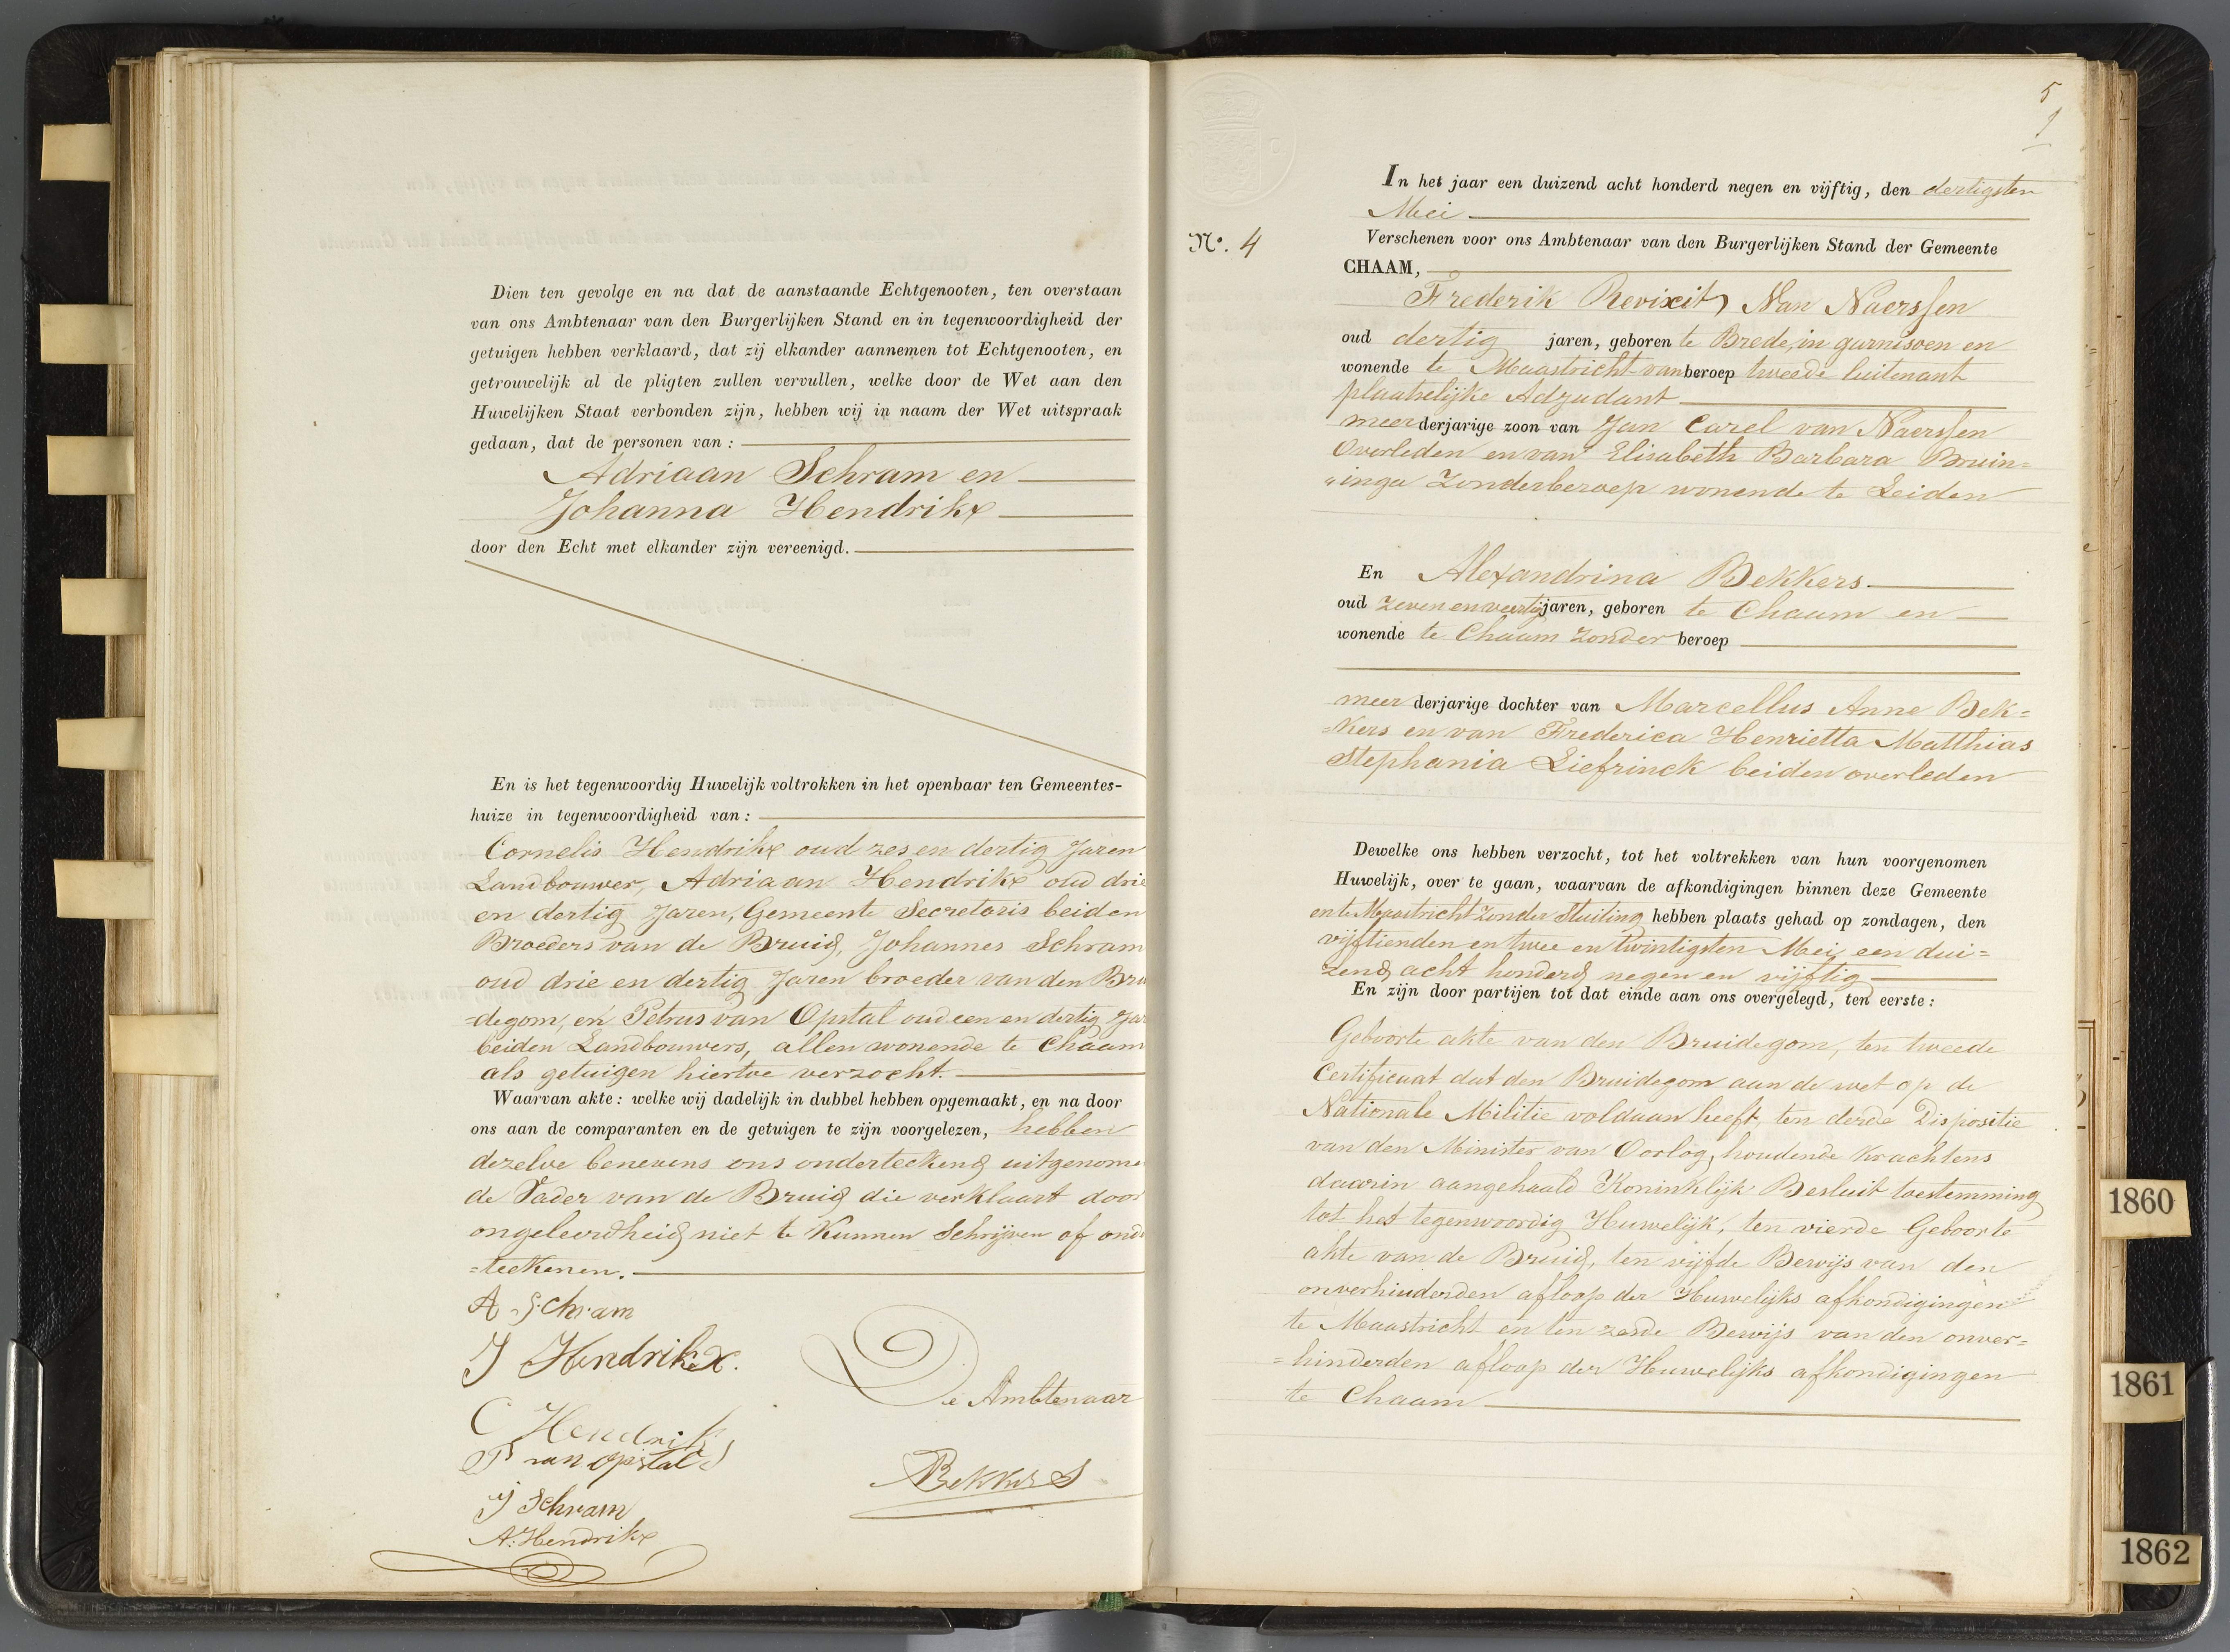 Dien ten gevolge en na dat de aanstaande Echtgenooten, ten overstaan
van ons Ambtenaar van den Burgerlijken Stand en in tegenwoordigheid der
getuigen hebben verklaard, dat zij elkander aannemen tot Echtgenooten, en
getrouwelijk al de pligten zullen vervullen, welke door de Wet aan den
Huwelijken Staat verbonden zijn, hebben wij in naam der Wet uitspraak
gedaan, dat de personen van:
Adriaan Schram en
Johanna Hendrikx
door den Echt met elkander zijn vereenigd.
En is het tegenwoordig Huwelijk voltrokken in het openbaar ten Gemeentes-
huize in tegenwoordigheid van:
Cornelis Hendrikx oud zes en dertig Jaren
Landbouwer, Adriaan Hendrikx oud drie
en dertig Jaren, Gemeente Secretaris beiden
Broeders van de Bruid, Johannes Schram
oud drie en dertig Jaren broeder van den Bru
=degom, en Petrus van Opstal oud een en dertig Jar
beiden Landbouwers, allen wonende te Chaam
als getuigen hiertoe verzocht.
Waarvan akte: welke wij dadelijk in dubbel hebben opgemaakt, en na door
ons aan de comparanten en de getuigen te zijn voorgelezen, hebben
dezelve benevens ons onderteekend uitgenome
de Vader van de Bruid die verklaart door
ongeleerdheid niet te Kunnen Schrijven of onde
=teekenen.
A Schram
J Hendrikx.
C Hendriks
De Ambtenaar
P van opstal
Bekkers
J Schram
A. Hendrikx
5
No. 4
In het jaar een duizend acht honderd negen en vijftig, den dertigsten
Mei
Verschenen voor ons Ambtenaar van den Burgerlijken Stand der Gemeente
CHAAM,
Frederik Revixit Van Naerssen
oud dertig jaren, geboren te Brede, in garnisoen en
wonende te Maastricht van beroep tweede luitenant
plaatselijke Adjudant
meerderjarige zoon van Jan Carel van Naerssen
Overleden en van Elisabeth Barbara Bruin=
"inga Zonderberoep wonende te Leiden
En Alexandrina Bekkers
oud zeven en veertig jaren, geboren te Chaam en
wonende te Chaam zonder beroep
meer derjarige dochter van Marcellus Anne Bek=
=kers en van Frederica Henrietta Matthias
Stephania Liefrinck beiden overleden
Dewelke ons hebben verzocht, tot het voltrekken van hun voorgenomen
Huwelijk, over te gaan, waarvan de afkondigingen binnen deze Gemeente
en te Maastricht zonder Stuiting hebben plaats gehad op zondagen, den
vijftienden en twee en twintigsten Mei een dui=
zend acht honderd negen en vijftig
En zijn door partijen tot dat einde aan ons overgelegd, ten eerste:
Geboorte akte van den Bruidegom, ten tweede
Certificaat dat den Bruidegom aan de wet op de
Nationale Militie voldaan heeft, ten derde Dispositie
van den Minister van Oorlog, houdende Krachtens
daarin aangehaald Koninklijk Besluit toestemming
tot het tegenwoordig Huwelijk, ten vierde Geboorte
akte van de Bruid, ten vijfde Bewijs van den
onverhinderden afloop der Huwelijks afkondigingen
te Maastricht en ten zesde Bewijs van den onver=
=hinderden afloop der Huwelijks afkondigingen
te Chaam
1860
1861
1862